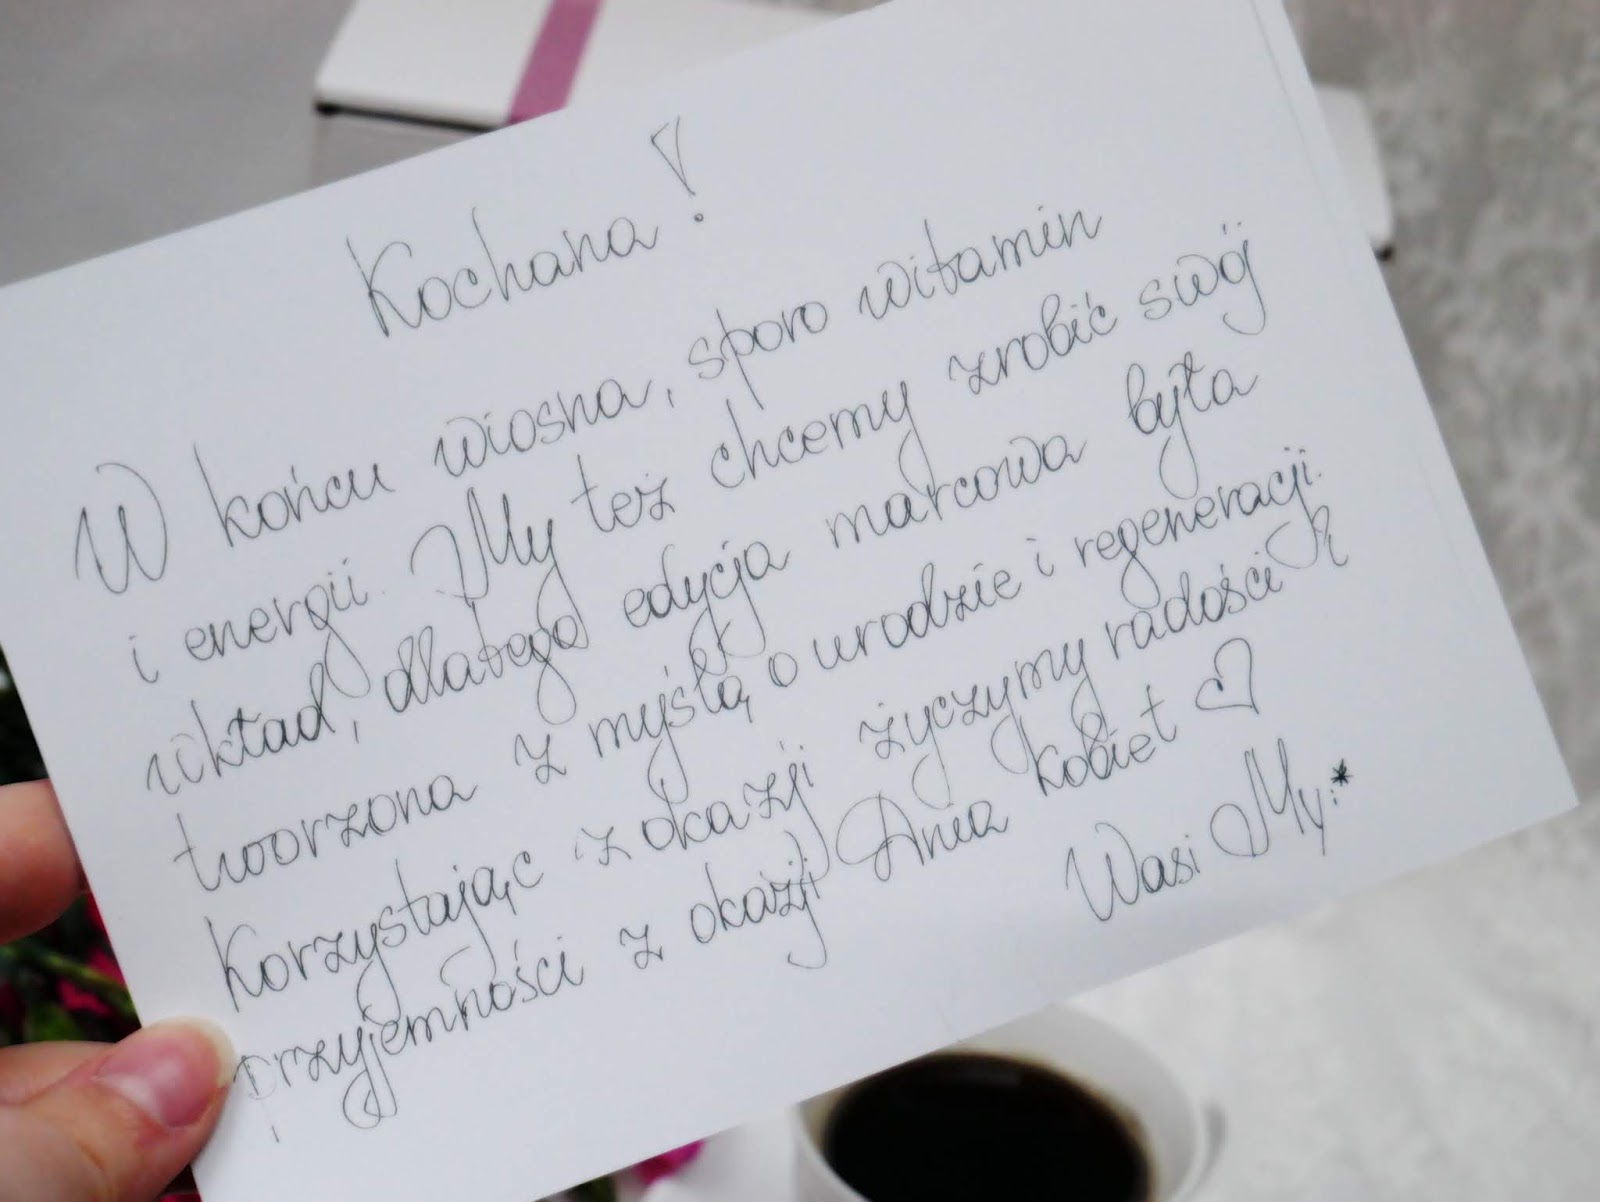 Kochana!
W końcu wiosna, sporo witamin
i energii. My też chcemy zrobić swój
wkład, dlatego edycja marcowa była
tworzona z myślą o urodzie i regeneracji.
Korzystając z okazji życzymy radości i
przyjemności z okazji Dnia kobiet ♡
Wasi My:*